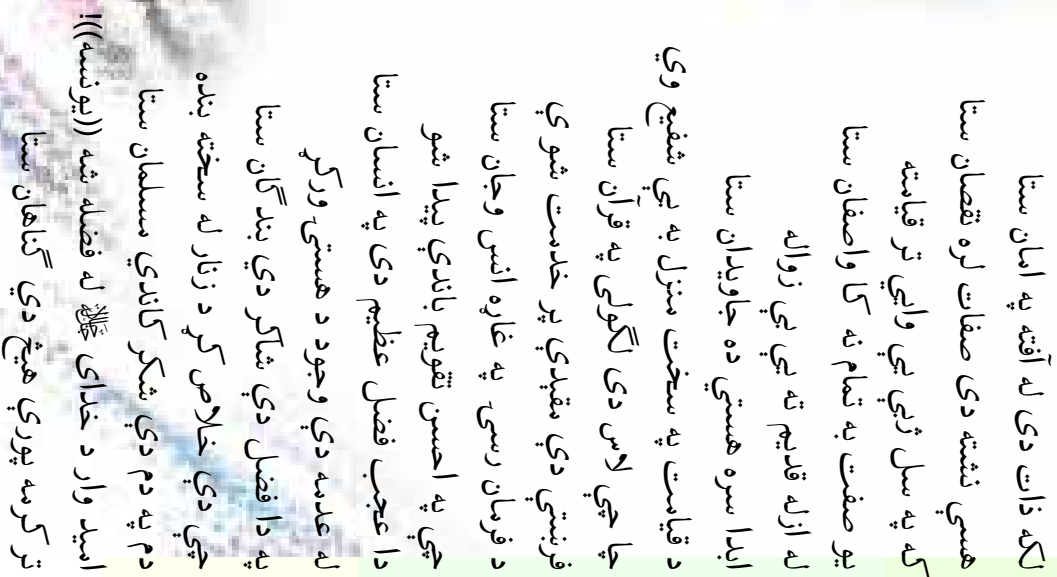 لکه ذات دی له آفته په امان ستا
هسې نشته دی صفات لره نقصان ستا
که په سل ژبې یې وایې تر قیامته
یو صفت به تمام نه کا واصفان ستا
له ازله قدیم ته یې بې زواله
ابدا سره هستي ده جاویدان ستا
د قیامت په سخت منزل به یې شفیع وي
چا چې لاس دی لگولی په قرآن ستا
فرښتې دي مقیدې پر خدمت شوي
د فرمان رسۍ په غاړه انس وجان ستا
چې په احسن تقویم باندې پیدا شو
دا عجب فضل عظیم دی په انسان ستا
له عدمه دې وجود د هستۍ ورکړ
په دا فضل دې شاکر دي بندگان ستا
چې دې خلاص کړ د زنار له سخته بنده
دم په دم دې شکر کاندي مسلمان ستا
امید وار د خدای ﷻ له فضله شه ((یونسه))!
تر کرمه پورې هیڅ دي گناهان ستا